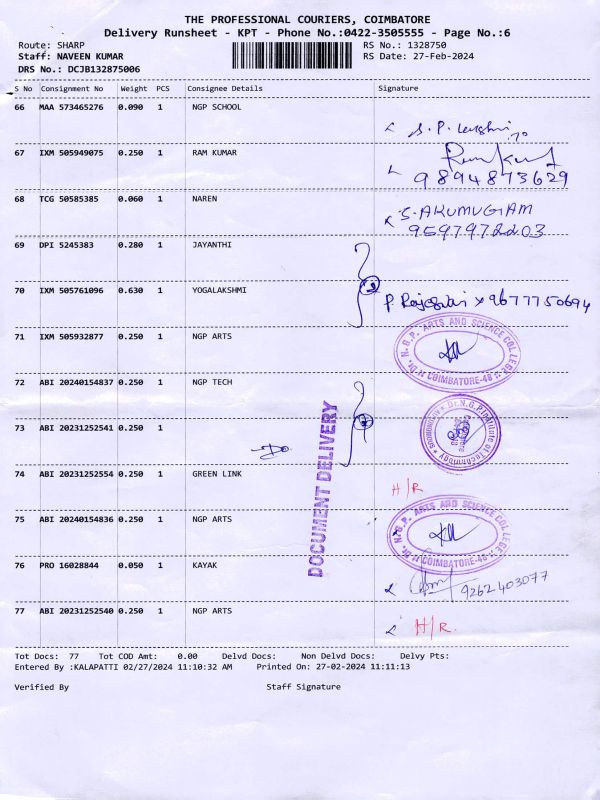 THE PROFESSIONAL COURIERS, COIMBATORE
Delivery Runsheet - KPT - Phone No.:0422-3505555 - Page No.:6
Route: SHARP
RS No.: 1328750
Staff: NAVEEN KUMAR
RS Date: 27-Feb-2024
DRS No.: DCJB132875006
S No Consignment No Weight PCS Consignee Details Signature
66 MAA 573465276 0.090 1 NGP SCHOOL
S. P.
67 IXM 505949075 0.250 1 RAM KUMAR
Ram Kumar
9894873629
68 TCG 50585385 0.060 1 NAREN
S. ARUMUGAM
9597972203
69 DPI 5245383 0.280 1 JAYANTHI
70 IXM 505761096 0.630 1 YOGALAKSHMI
P. x 9677750694
71 IXM 505932877 0.250 1 NGP ARTS
Dr. N. G. P. ARTS AND SCIENCE COLLEGE
COIMBATORE-48
72 ABI 20240154837 0.250 1 NGP TECH
73 ABI 20231252541 0.250 1
Dr. N.G.P. Institute of Technology
DOCUMENT DELIVERY
74 ABI 20231252554 0.250 1 GREEN LINK
H/R
75 ABI 20240154836 0.250 1 NGP ARTS
Dr. N. G. P. ARTS AND SCIENCE COLLEGE
COIMBATORE-48
76 PRO 16028844 0.050 1 KAYAK
9262403077
77 ABI 20231252540 0.250 1 NGP ARTS
H/R.
Tot Docs: 77 Tot COD Amt: 0.00 Delvd Docs: Non Delvd Docs: Delvy Pts:
Entered By :KALAPATTI 02/27/2024 11:10:32 AM Printed On: 27-02-2024 11:11:13
Verified By Staff Signature